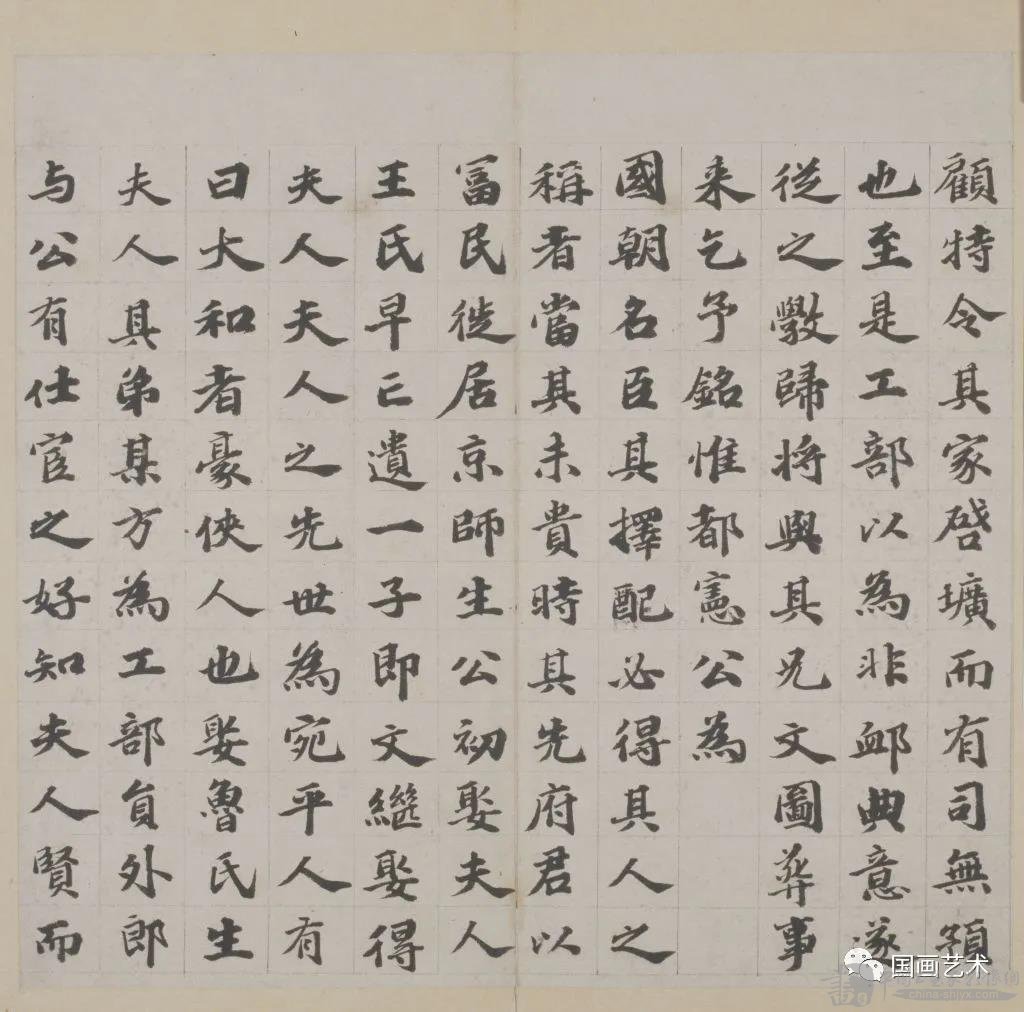 顧特令其家啓壙而有司無額
也至是工部以為非卹典意遂
從之斆歸將與其兄文圖葬事
来乞予銘惟都憲公為
國朝名臣其擇配必得其人之
稱者當其未貴時其先府君以
冨民徙居京師生公初娶夫人
王氏早亡遺一子即文繼娶得
夫人夫人之先世為宛平人有
曰大和者豪俠人也娶魯氏生
夫人其弟某方為工部負外郎
与公有仕宦之好知夫人賢而
国画艺术
china-shjyx.com